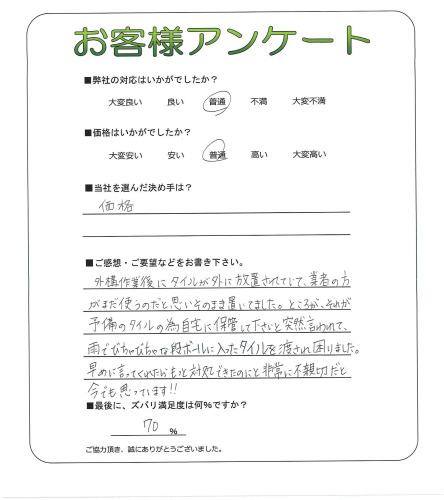 お客様アンケート
■弊社の対応はいかがでしたか?
大変良い 良い 普通 不満 大変不満
■価格はいかがでしたか?
大変安い 安い 普通 高い 大変高い
■当社を選んだ決め手は?
価格
■ご感想・ご要望などをお書き下さい。
外構作業後にタイルが外に放置されていて、業者の方
がまだ使うのだと思いそのまま置いてました。ところが、それが
予備のタイルの為自宅に保管して下さいと突然言われて、
雨でびちゃびちゃな段ボールに入ったタイルを渡され困りました。
早めに言ってくれたらもっと対処できたのにと非常に不親切だと
今でも思っています!!
■最後に、ズバリ満足度は何%ですか?
70 %
ご協力頂き、誠にありがとうございました。